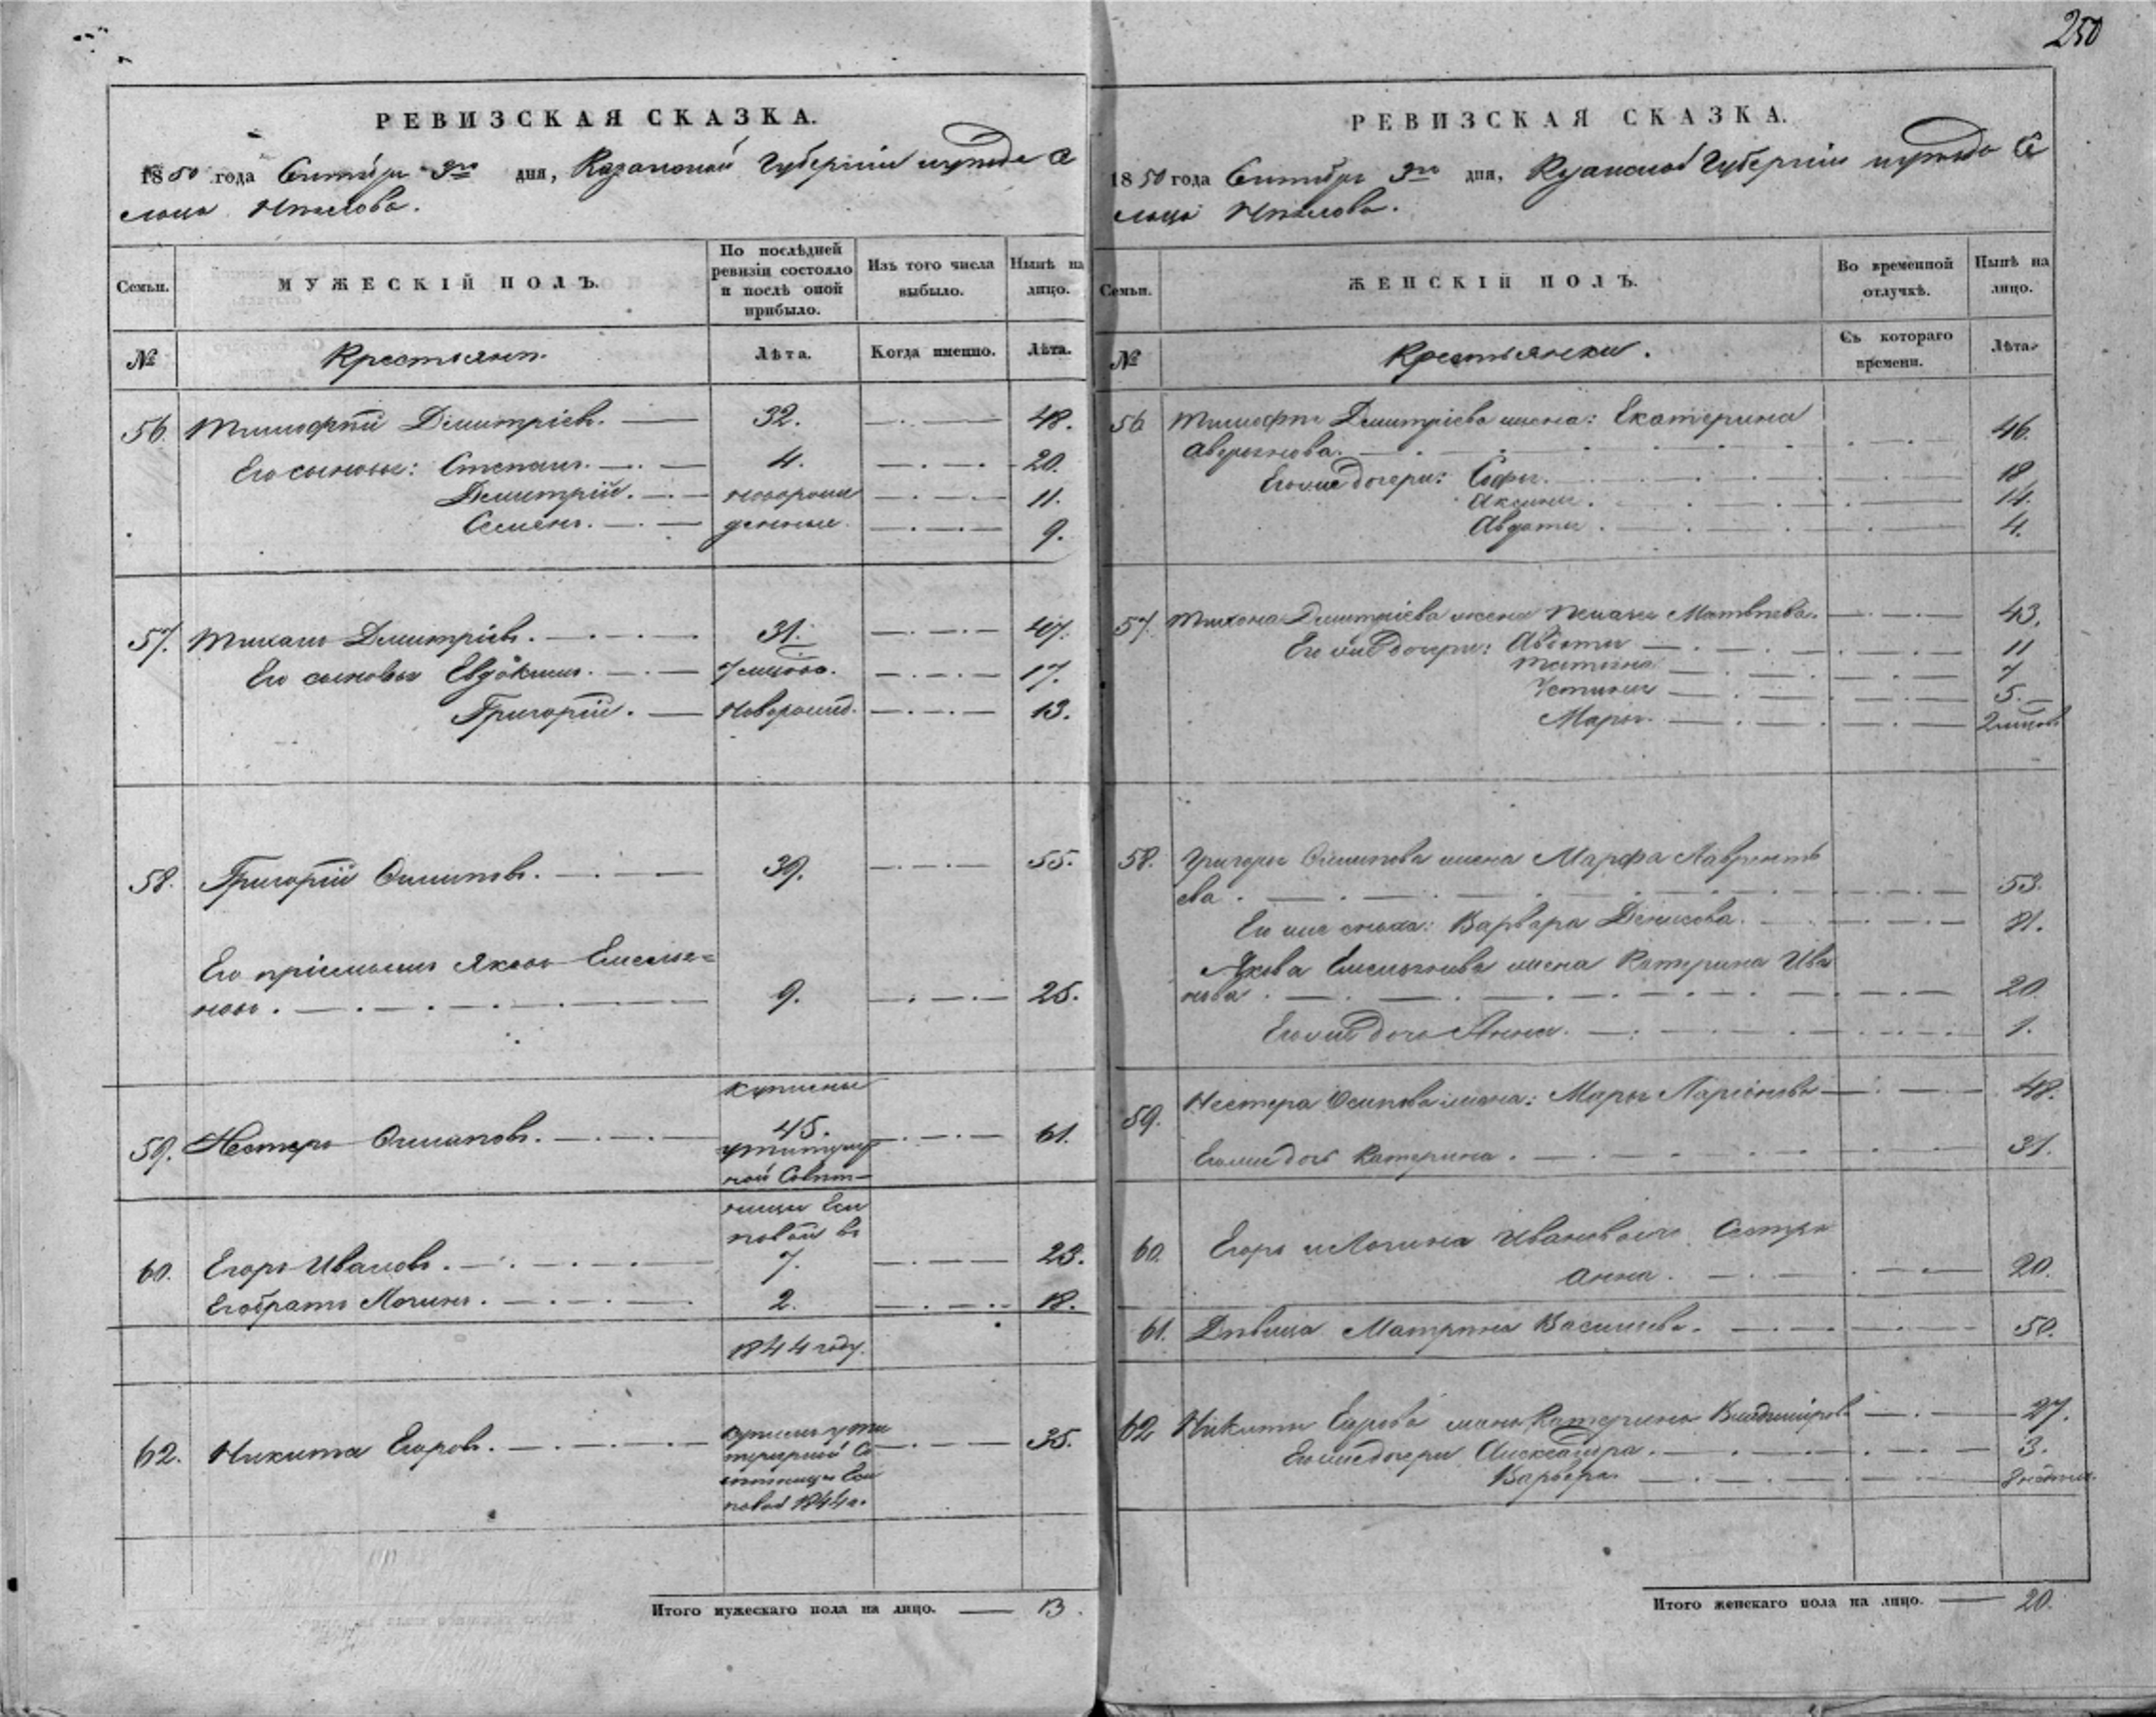 250
РЕВИЗСКАЯ СКАЗКА.
1850 года Сентября 3го дня, Казанской Губернии
МУЖЕСКІЙ ПОЛЪ.
Семьи.
По послѣдней ревизіи состояло и послѣ оной прибыло.
Изъ того числа выбыло.
Нынѣ на лицо.
№
Крестьяне.
Лѣта.
Когда именно.
Лѣта.
56. Тимофей Дмитріевъ. 32. 48.
Его сыновья: Степанъ. 4. 20.
Дмитрій. новорож 11.
Семенъ. денные. 9.
57. Тихонъ Дмитріевъ. 31. 47.
Его сыновья Евдокимъ. 17.
Григорій. Новорожд. 13.
58. Григорій Осиповъ. 39. 55.
Его пріемышъ Яковъ Емелья=
новъ. 9. 25.
купленные
59. Несторъ Осиповъ. 45. 61.
60. Егоръ Ивановъ. 7. 23.
Его братъ Логинъ. 2. 18.
1844 году.
62. Никита Егоровъ. 35.
1844 г.
Итого мужескаго пола на лицо. 13.
РЕВИЗСКАЯ СКАЗКА.
1850 года Сентября 3го дня, Губерніи
Семьи.
ЖЕНСКІЙ ПОЛЪ.
Во временной отлучкѣ.
Нынѣ на лицо.
№
Крестьянки.
Съ котораго времени.
Лѣта.
56 Тимофея Дмитріева жена: Екатерина
Аверьянова. 46.
Его же дочери: Софья. 18
Аксинья. 14.
Авдотья. 4.
57. Тихона Дмитріева жена Пелагея Матвѣева. 43.
Его же дочери: Авдотья 11
Татьяна 7
Устинья 5.
Марья.
58. Григорья Осипова жена Марфа Лаврентье
ева. 53.
Ея же сноха: Варвара Денисова. 31.
Якова Емельянова жена Катерина Ива
нова. 20.
Его же дочь Анна. 1.
59. Нестера Осипова жена: Марья Ларіонова 48.
Его же дочь Катерина. 31.
60. Егора и Логина Ивановыхъ Сестра
Анна. 20.
61. Дѣвица Матрена Васильева. 50.
62 Никиты Егорова жена Катерина Владимірова 27.
Его же дочери Александра. 3.
Варвара
Итого женскаго пола на лицо. 20.